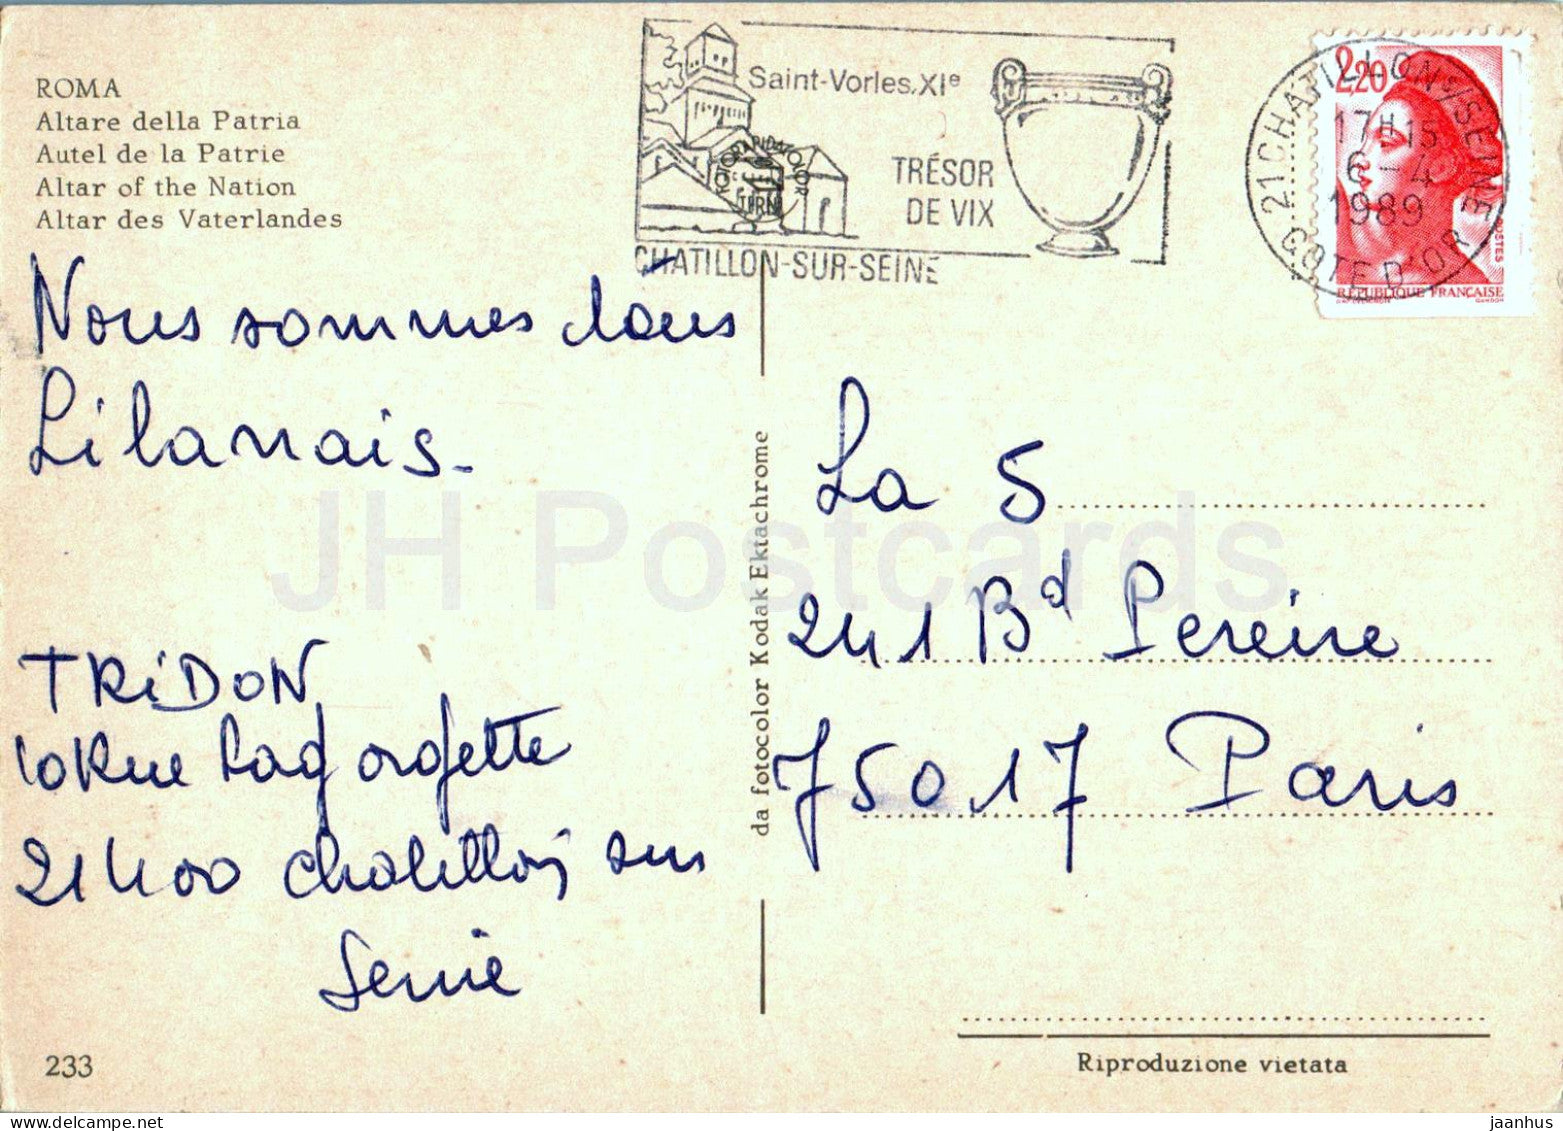 ROMA
Altare della Patria
Autel de la Patrie
Altar of the Nation
Altar des Vaterlandes
Saint-Vorles.XIe
TRÉSOR
DE VIX
CHATILLON-SUR-SEINE
FOTORAPIDACOLOR
TERNI
21 CHATILLON S/SEINE
17H15
6-4
1989
COTE D'OR
2,20
POSTES
RÉPUBLIQUE FRANÇAISE
GANDON
Nous sommes dans
Lilanais.
TRiDON
10 Rue
21400 Chatillon sur
Seine
233
da fotocolor Kodak Ektachrome
La 5
241 Bd Pereire
75017 Paris
Riproduzione vietata
JH Postcards
www.delcampe.net
jaanhus